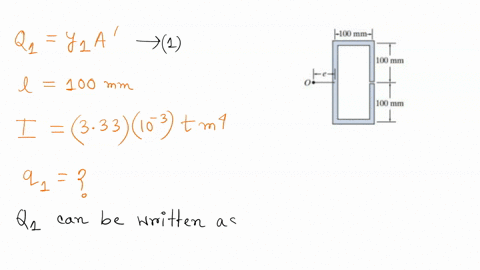 Q₁ = y₁ A' → (1)
l = 100 mm
I = (3.33)(10⁻³) t m⁴
q₁ = ?
Q₁ can be written as
100 mm
100 mm
e
O
100 mm